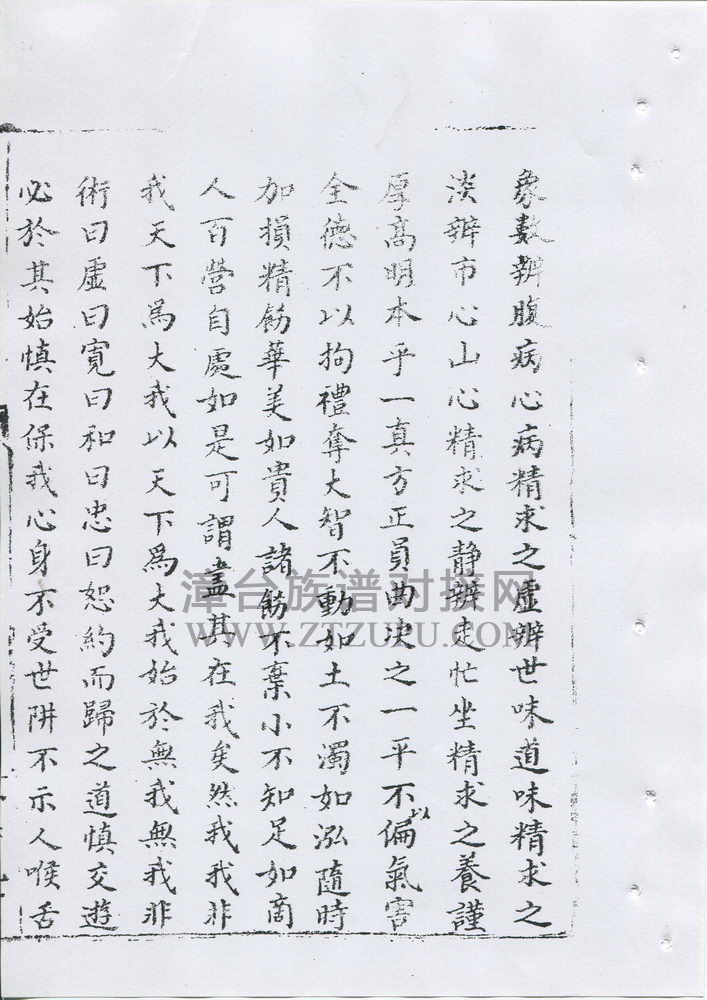 象數辨腹病心病精求之虛辨世味道味精求之
淡辨市心山心精求之静辨走忙坐精求之養謹
厚高明本乎一真方正員曲决之一平不以偏氣害
全德不以拘禮奪大智不動如土不濁如泓隨時
加損精飭華美如貴人諸飭不棄小不知足如商
人百營自處如是可謂盡其在我矣然我我非
我天下為大我以天下為大我始於無我無我非
術曰虛曰寬曰和曰忠曰恕約而歸之道慎交遊
必於其始慎在保我心身不受世阱不示人喉舌
漳台族谱对接网
WWW.ZTZUPU.COM